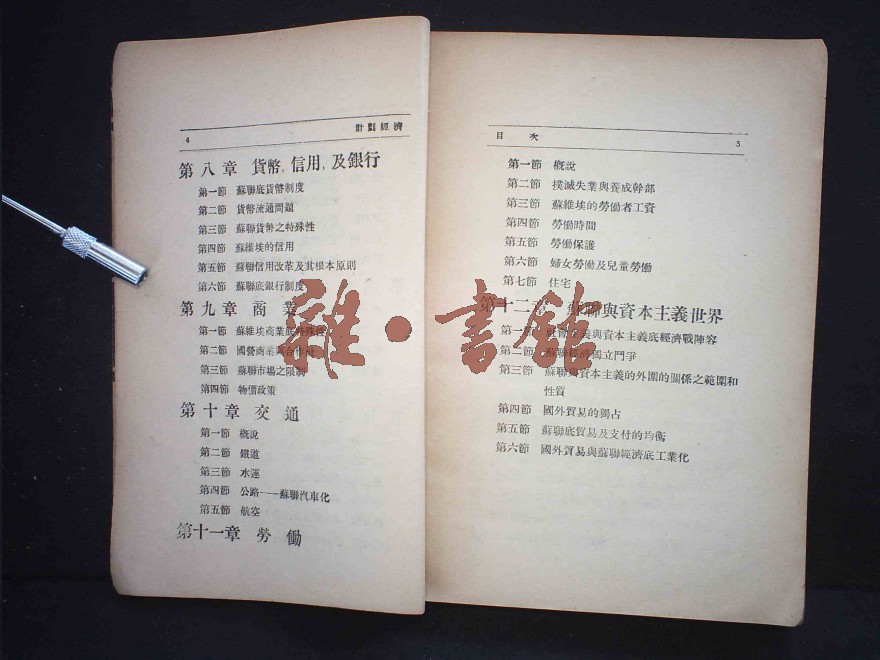 4 計劃經濟
第八章 貨幣，信用，及銀行
第一節 蘇聯底貨幣制度
第二節 貨幣流通問題
第三節 蘇聯貨幣之特殊性
第四節 蘇維埃的信用
第五節 蘇聯信用改革及其根本原則
第六節 蘇聯底銀行制度
第九章 商業
第一節 蘇維埃商業底特殊性
第二節 國營商業與合作社
第三節 蘇聯市場之限制
第四節 物價政策
第十章 交通
第一節 概說
第二節 鐵道
第三節 水運
第四節 公路——蘇聯汽車化
第五節 航空
第十一章 勞働
目次 5
第一節 概說
第二節 撲滅失業與養成幹部
第三節 蘇維埃的勞働者工資
第四節 勞働時間
第五節 勞働保護
第六節 婦女勞働及兒童勞働
第七節 住宅
第十二章 蘇聯與資本主義世界
第一節 社會主義與資本主義底經濟戰陣容
第二節 蘇聯經濟獨立鬥爭
第三節 蘇聯與資本主義的外圍的關係之範圍和
性質
第四節 國外貿易的獨占
第五節 蘇聯底貿易及支付的均衡
第六節 國外貿易與蘇聯經濟底工業化
雜·書館